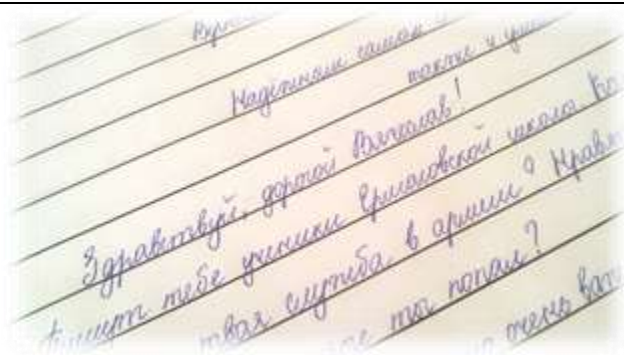 самом
также и
Здравствуй, дорогой Вячеслав!
Пишут тебе ученики Ермоловской школы. Ка
твоя служба в армии? Нрав
ты попал?
очень